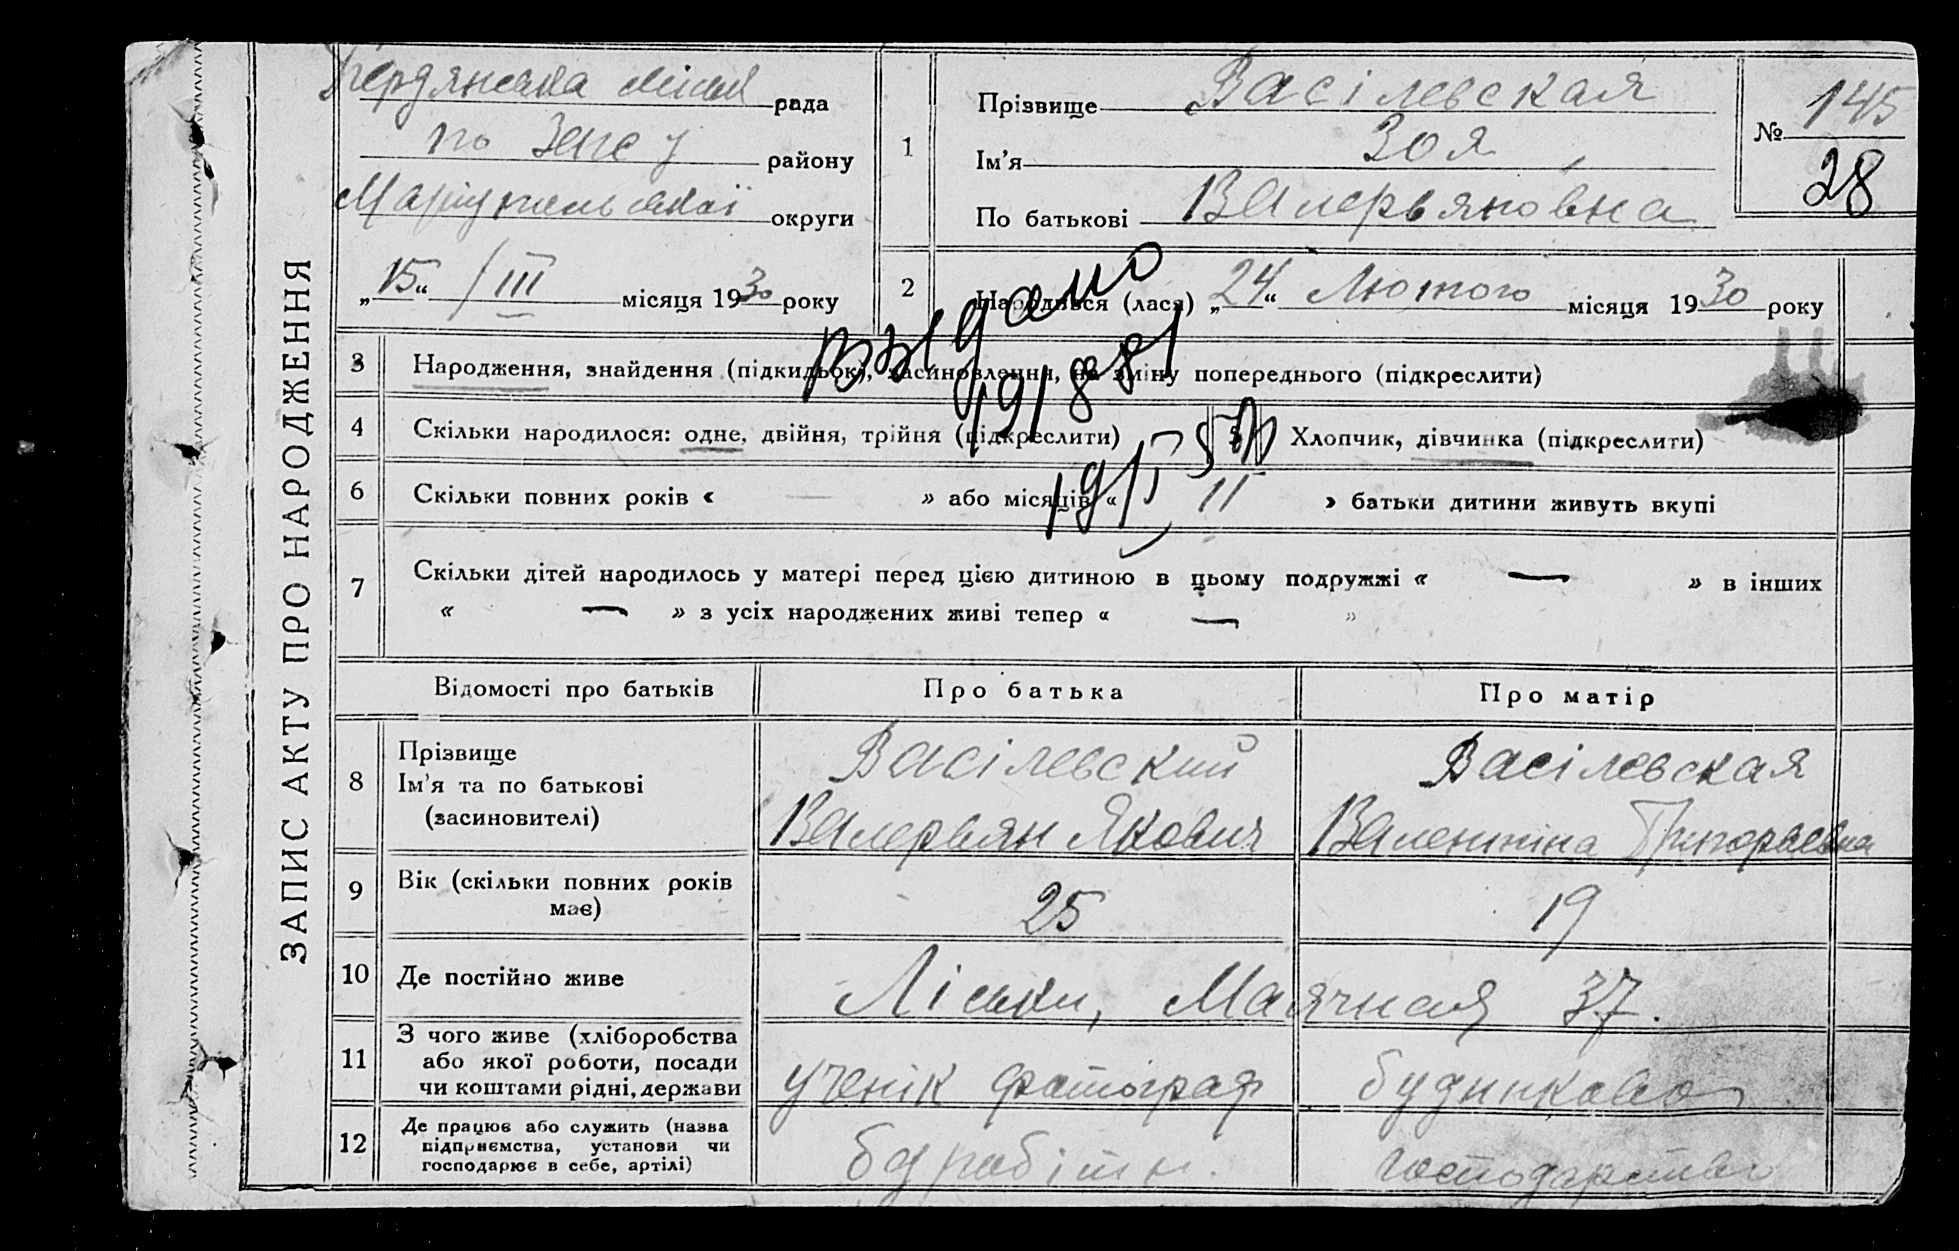 ЗАПИС АКТУ ПРО НАРОДЖЕННЯ
Бердянська міська рада
по ЗАГС у району
Маріупольської округи
„15“ / III місяця 1930 року
1
Прізвище Васілевская
Ім’я Зоя
По батькові Валерьяновна
№ 145
28
2
Народився (лася) „24“ Лютого місяця 1930 року
выдано
3
Народження, знайдення (підкидьок), засиновлення, на зміну попереднього (підкреслити)
4
Скільки народилося: одне, двійня, трійня (підкреслити)
5
Хлопчик, дівчинка (підкреслити)
6
Скільки повних років « — » або місяців « 11 » батьки дитини живуть вкупі
7
Скільки дітей народилось у матері перед цією дитиною в цьому подружжі « — » в інших
« — » з усіх народжених живі тепер « — »
Відомості про батьків
Про батька
Про матір
8
Прізвище
Ім’я та по батькові
(засиновителі)
Васілевский
Валерьян Якович
Васілевская
Валентіна Григорьевна
9
Вік (скільки повних років
має)
25
19
10
Де постійно живе
Ліски, Маячная 37.
11
З чого живе (хліборобства
або якої роботи, посади
чи коштами рідні, держави
ученік фотограф
будинково
12
Де працює або служить (назва
підприємства, установи чи
господарює в себе, артілі)
господарство